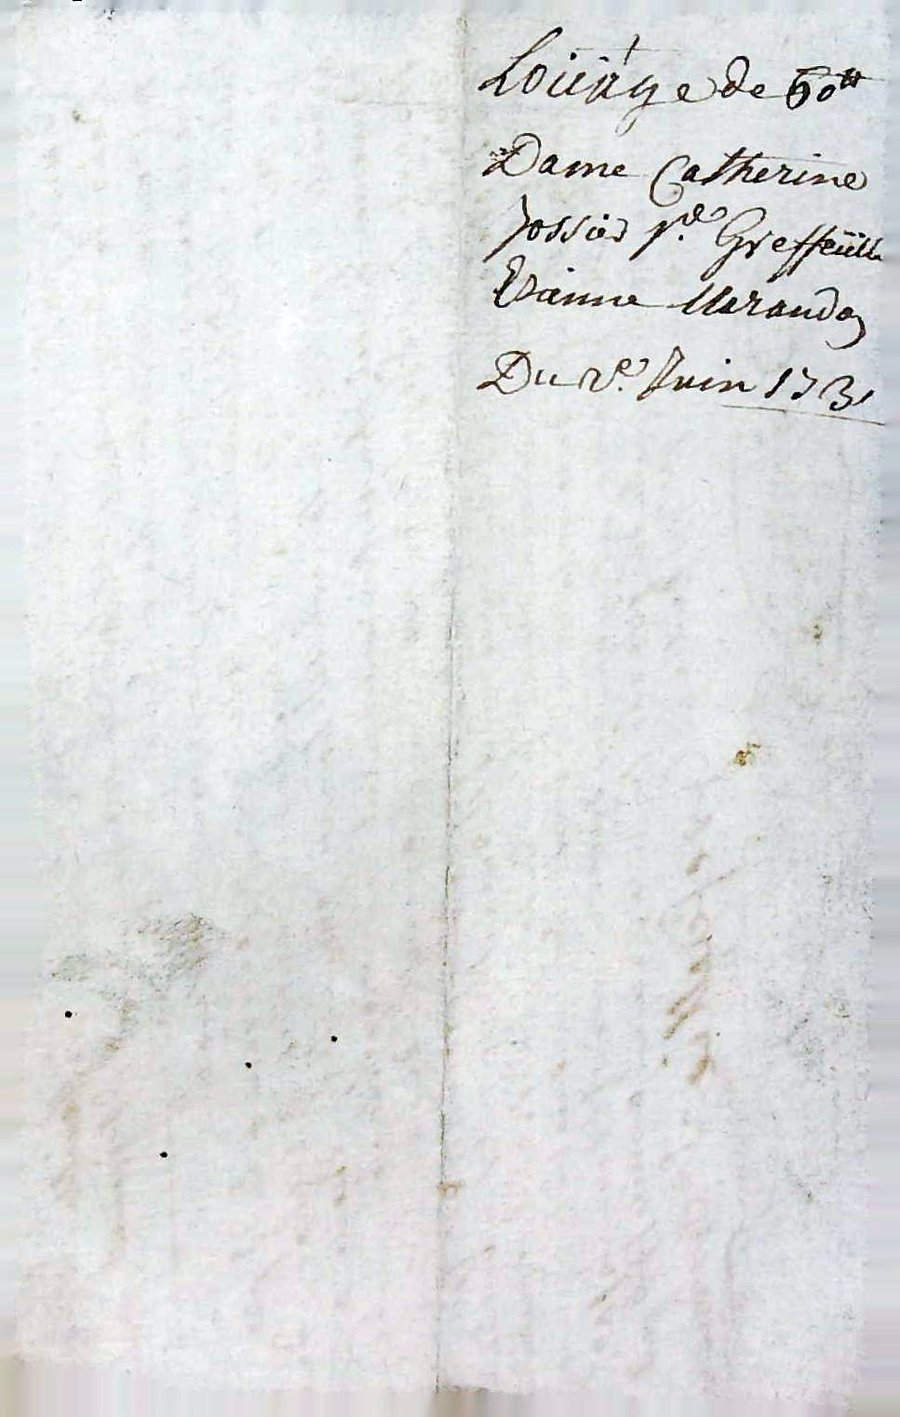 Loüage de 60ᵗᵗ
Dame Catherine
Jossier pʳ.ᵉ Greffeüille
Etienne Marandon
Du 2ᵉ. Juin 1731